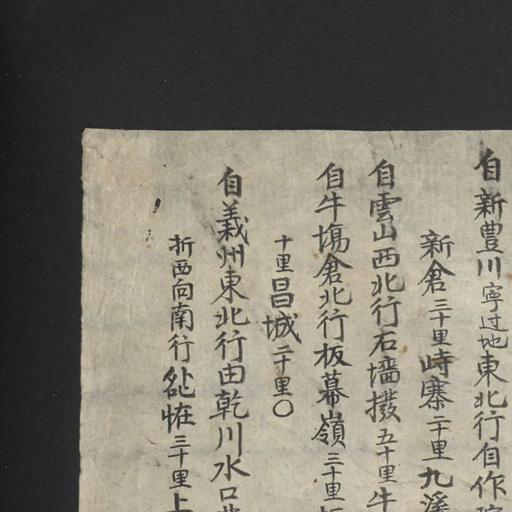 自新豊川寧过地東北行自作
新倉三十里時寨二十里九溪
自雲山西北行石墻撥五十里牛
自牛塲倉北行板幕嶺三十里
十里昌城二十里〇
自義州東北行由乾川水口
折西向南行恠三十里上